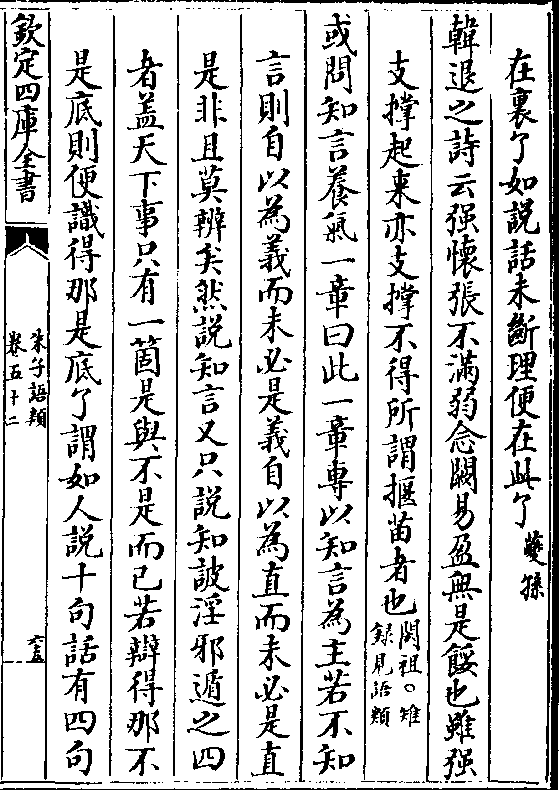 在裏了如説話未斷理便在此了夔孫
韓退之詩云强懷張不滿弱念闕易盈無是餒也雖强
支撑起來亦支撑不得所謂揠苗者也閎祖○雉録見語類
或問知言養氣一章曰此一章專以知言為主若不知
言則自以為義而未必是義自以為直而未必是直
是非且莫辨矣然説知言又只説知詖淫邪遁之四
者盖天下事只有一箇是與不是而已若辯得那不
是底則便識得那是底了謂如人説十句話有四句
欽定四庫全書
朱子語類
卷五十二